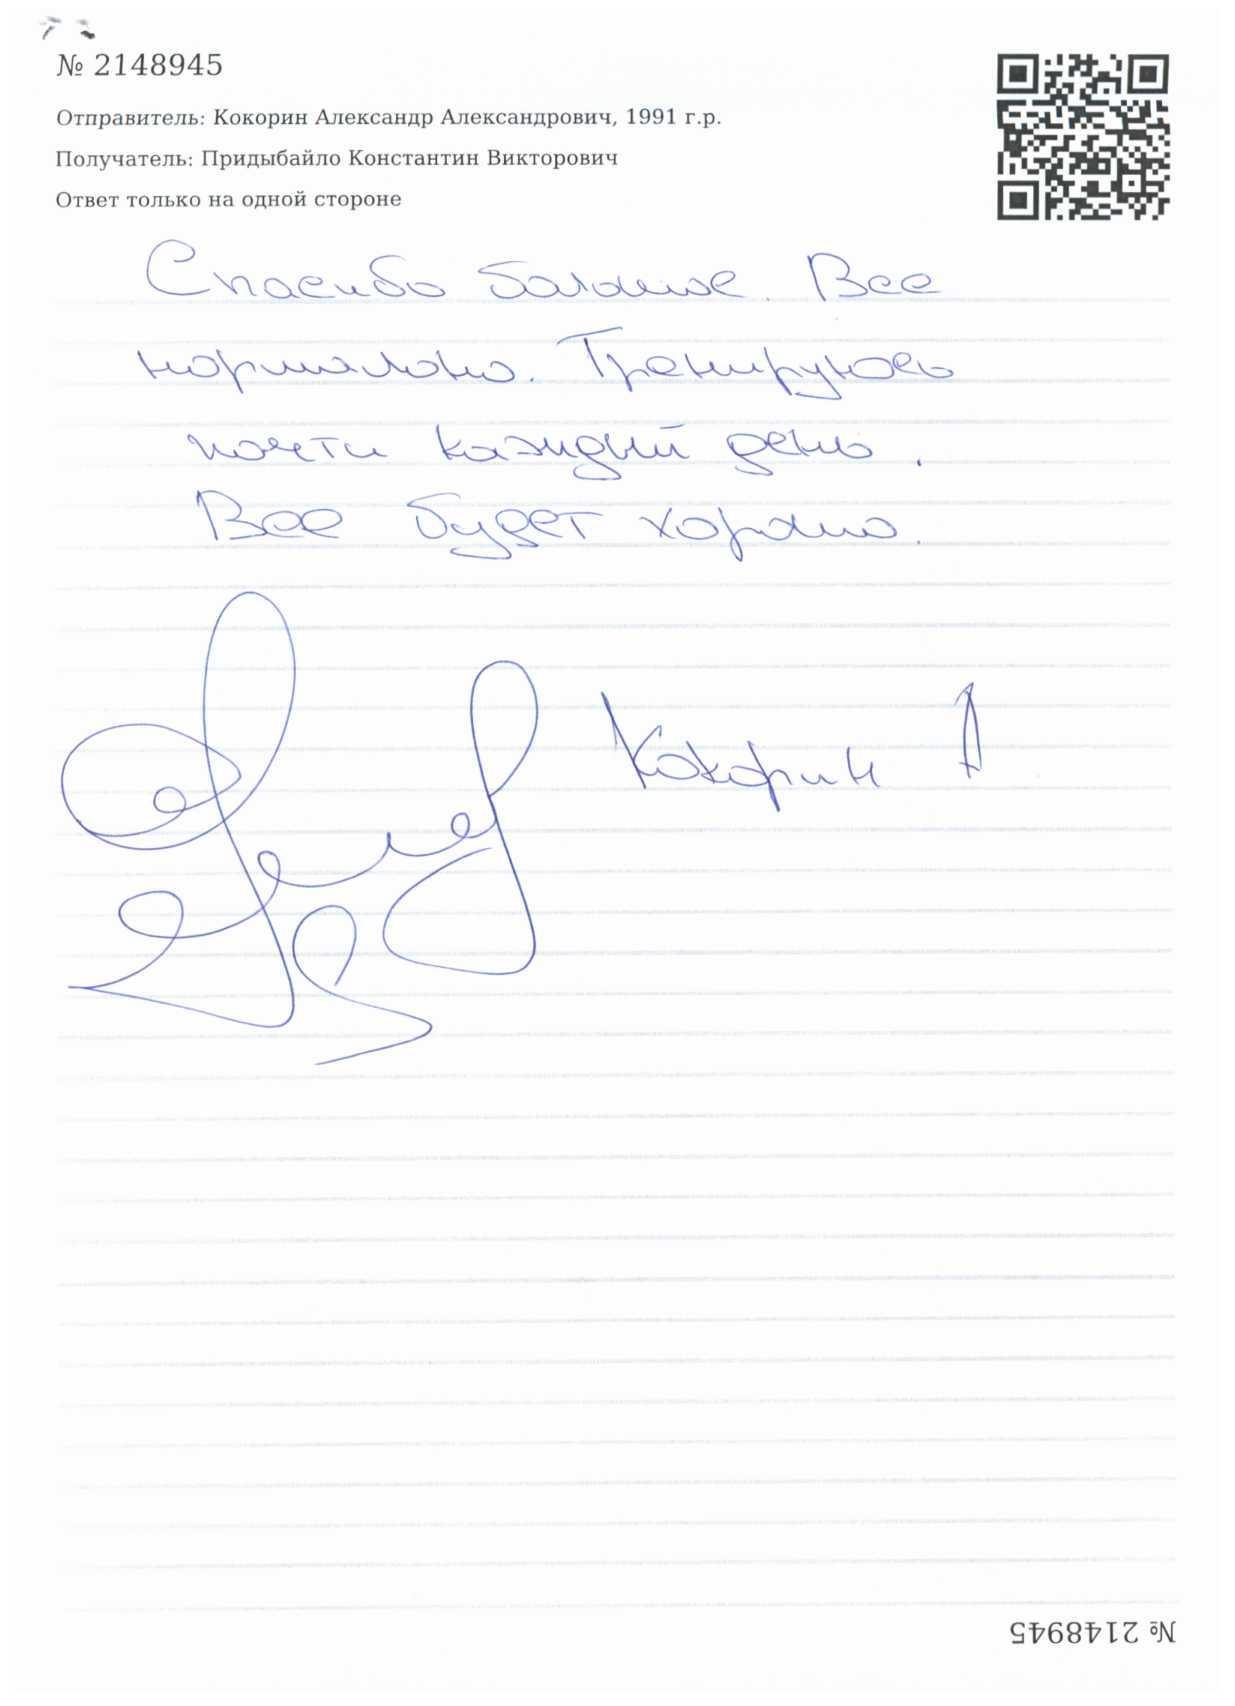 № 2148945
Отправитель: Кокорин Александр Александрович, 1991 г.р.
Получатель: Придыбайло Константин Викторович
Ответ только на одной стороне
Спасибо большое. Все
нормально. Тренируюсь
почти каждый день.
Все будет хорошо.
Кокорин А
№ 2148945